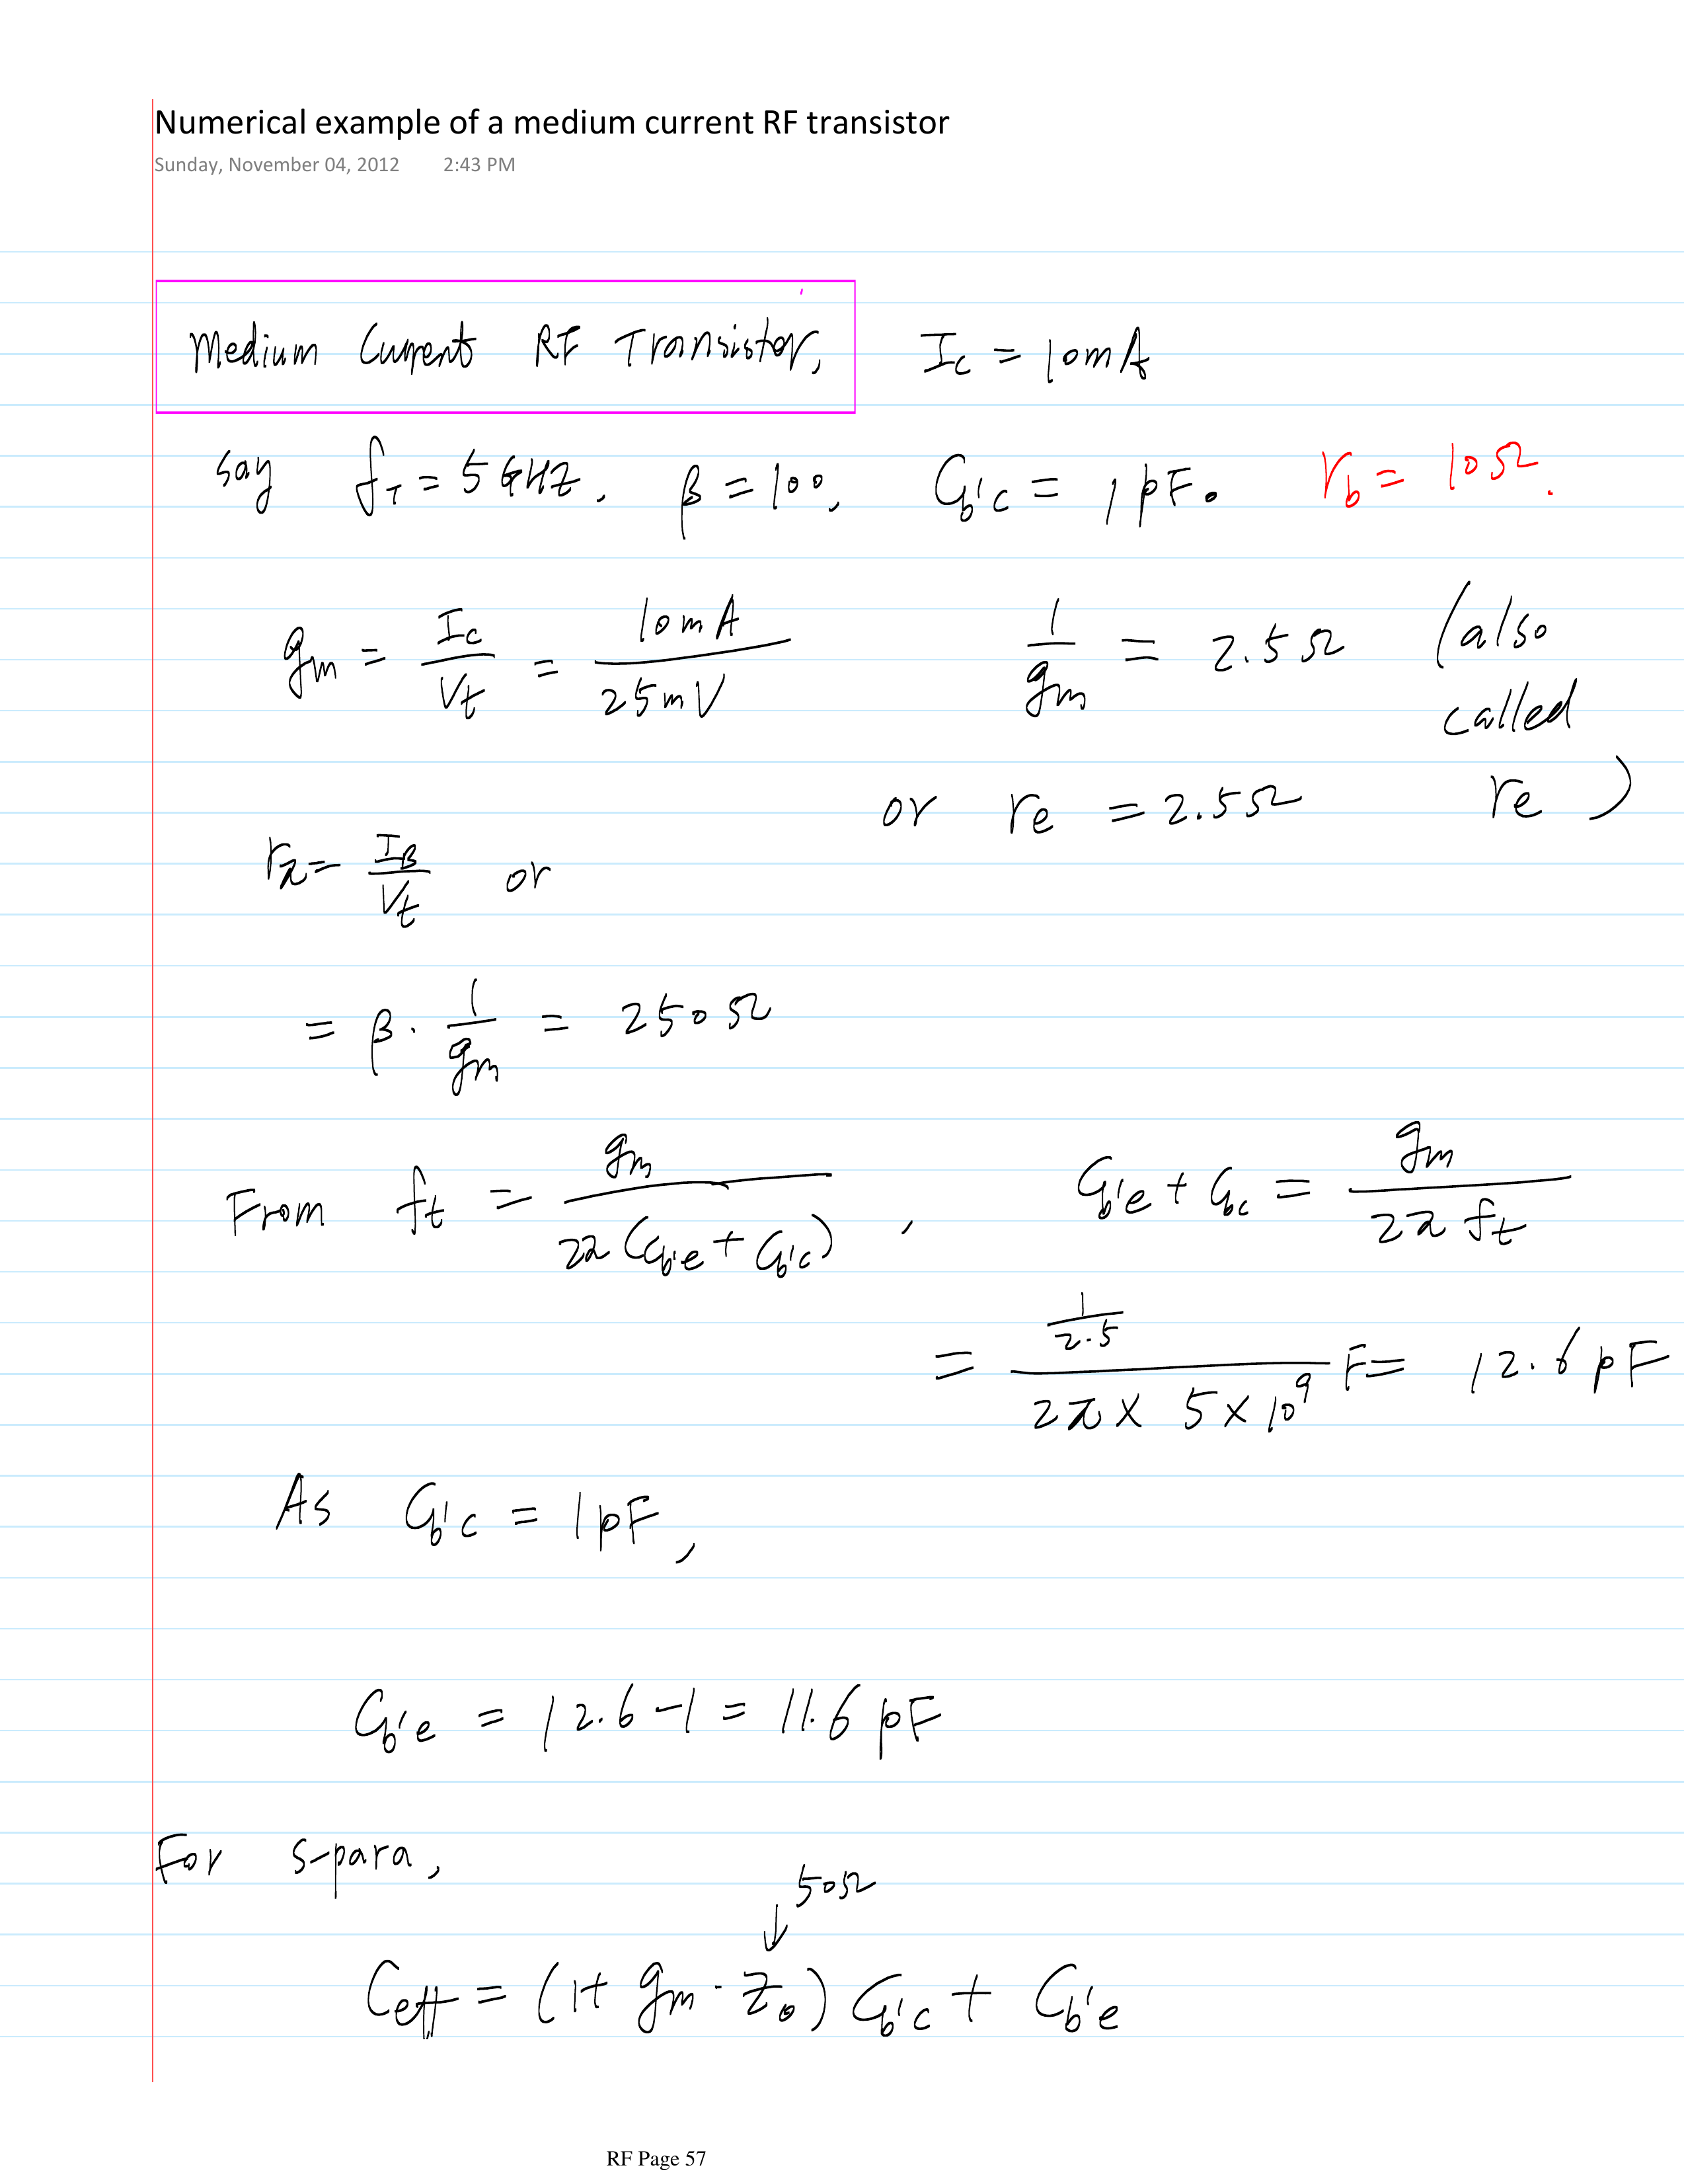 Numerical example of a medium current RF transistor
Sunday, November 04, 2012 2:43 PM
Medium Current RF Transistor, Ic = 10mA
say f_T = 5 GHZ, β = 100, Cb'c = 1 pF. r_b = 10Ω.
gm = Ic/Vt = 10mA/25mV 1/gm = 2.5Ω (also
called
or re = 2.5Ω re)
rπ = I_B/Vt or
= β · 1/gm = 250Ω
From ft = gm/2π(Cb'e + Cb'c), Cb'e + Cbc = gm/2π ft
= (1/2.5)/(2π × 5 × 10^9) F = 12.6 pF
As Cb'c = 1pF,
Cb'e = 12.6 - 1 = 11.6 pF
For s-para,
50Ω
↓
Ceff = (1 + gm · Zo) Cb'c + Cb'e
RF Page 57